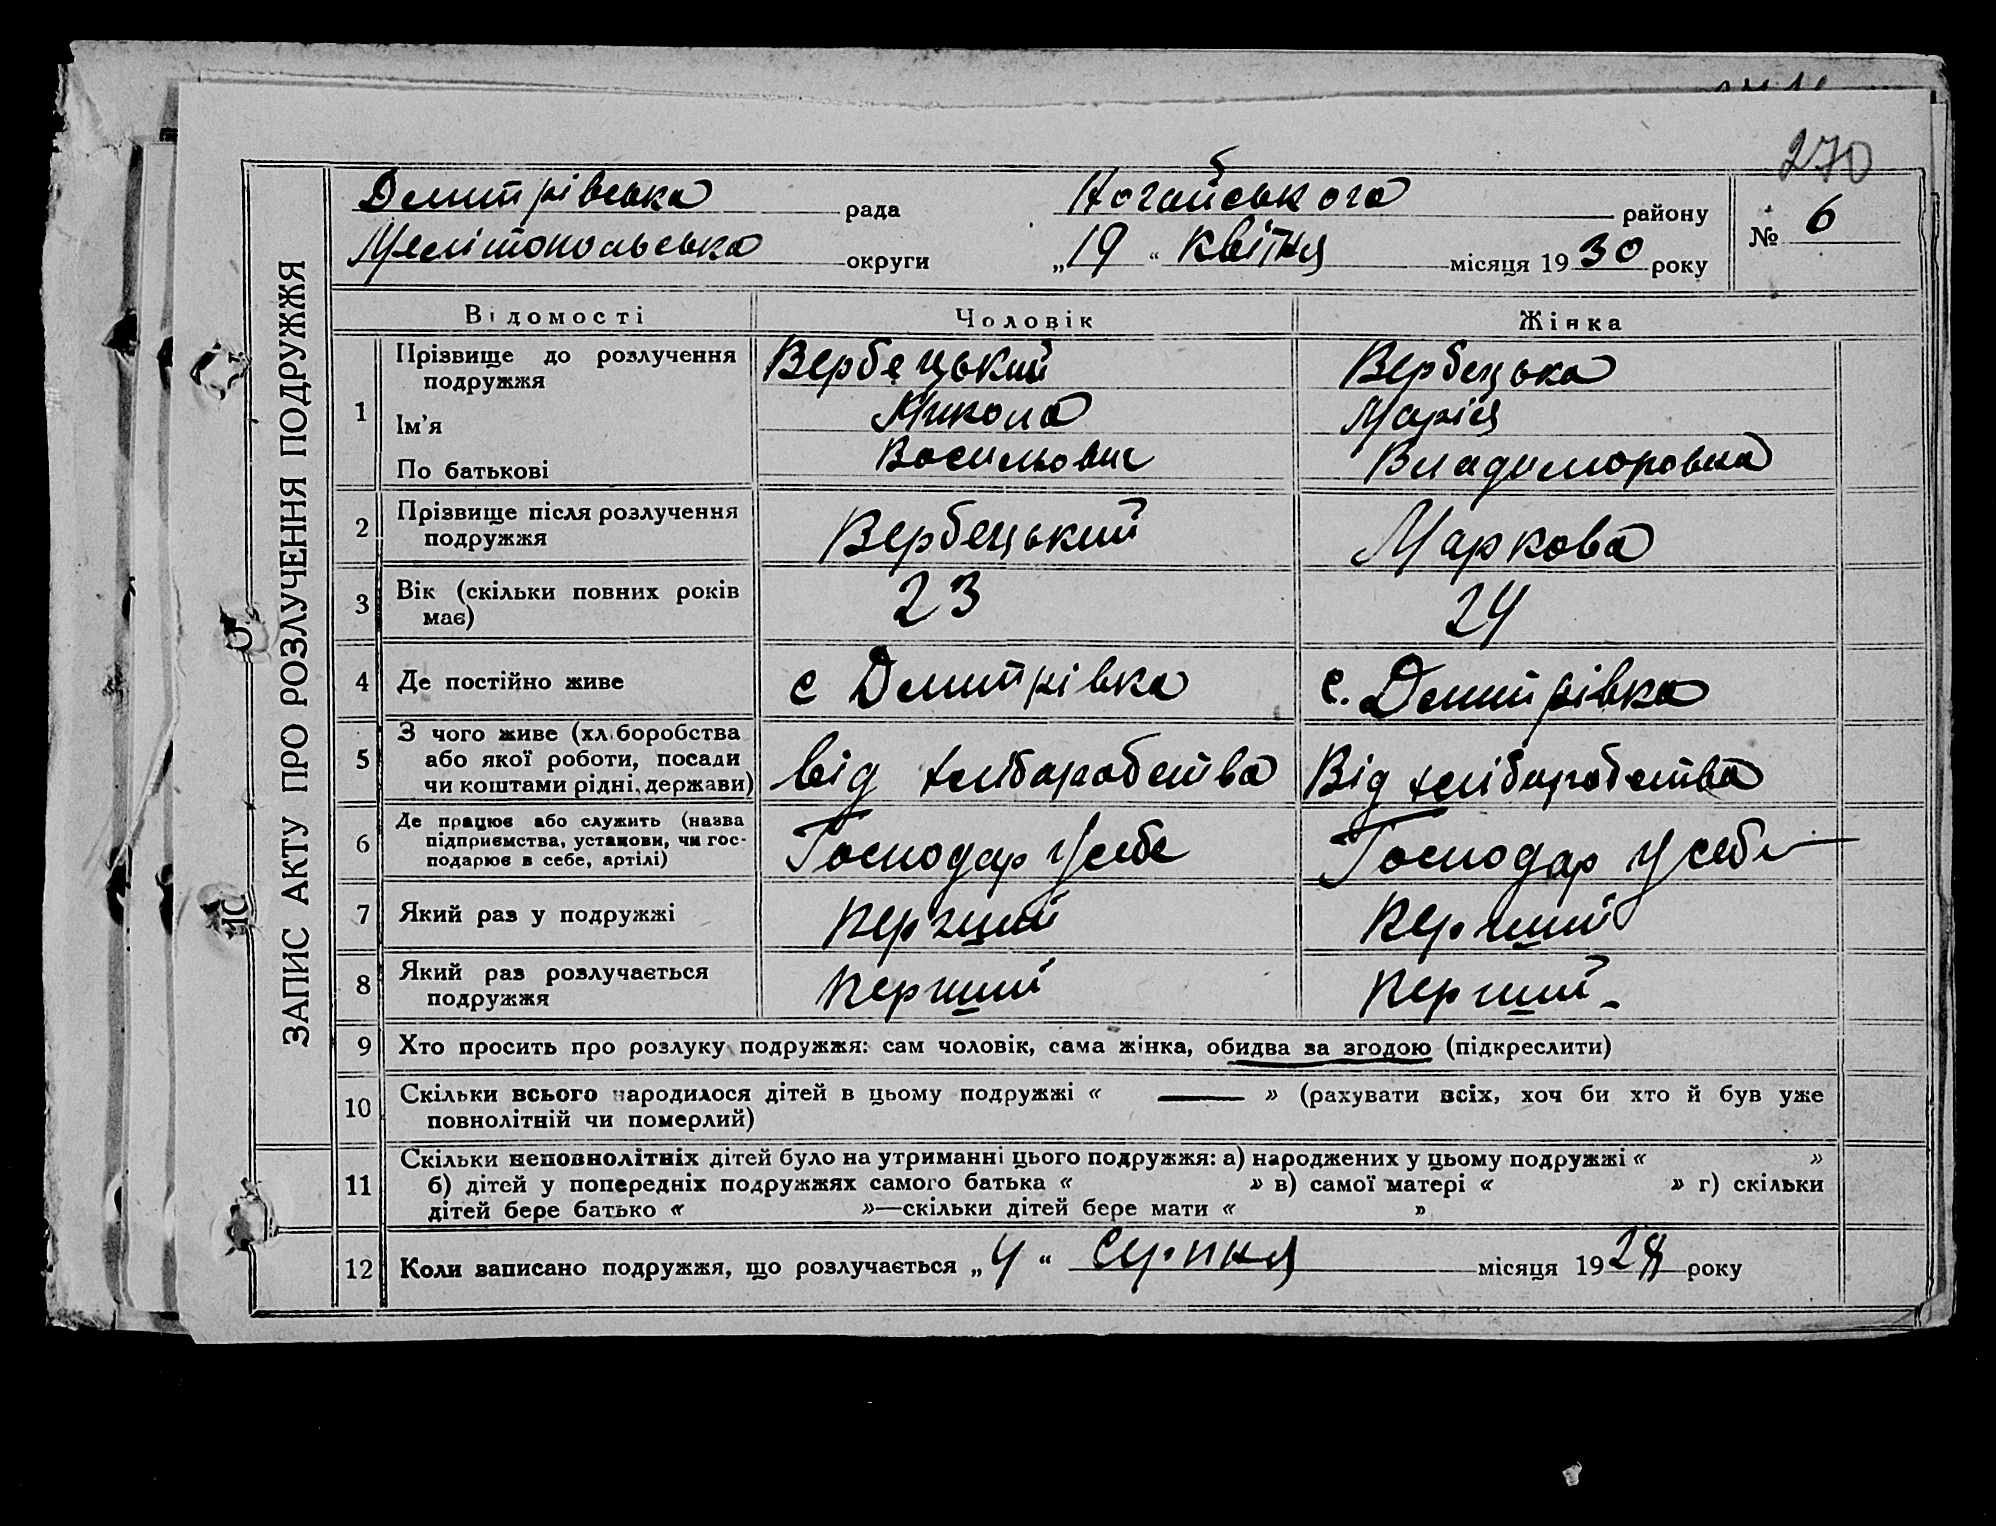 270
ЗАПИС АКТУ ПРО РОЗЛУЧЕННЯ ПОДРУЖЖЯ
Дмитрівська рада Ногайського району № 6
Мелітопольська округи „19“ квітня місяця 1930 року
Відомості Чоловік Жінка
1 Прізвище до розлучення подружжя Вербецький Вербецька
Ім'я Микола Марія
По батькові Василович Владимировна
2 Прізвище після розлучення подружжя Вербецький Маркова
3 Вік (скільки повних років має) 23 24
4 Де постійно живе с Дмитрівка с. Дмитрівка
5 З чого живе (хліборобства
або якої роботи, посади
чи коштами рідні, держави) від хліборобства Від хліборобства
6 Де працює або служить (назва
підприємства, установи, чи гос-
подарює в себе, артілі) Господар у себе Господар у себе
7 Який раз у подружжі перший перший
8 Який раз розлучається
подружжя перший перший
9 Хто просить про розлуку подружжя: сам чоловік, сама жінка, обидва за згодою (підкреслити)
10 Скільки всього народилося дітей в цьому подружжі « — » (рахувати всіх, хоч би хто й був уже
повнолітній чи померлий)
11 Скільки неповнолітніх дітей було на утриманні цього подружжя: а) народжених у цьому подружжі « »
б) дітей у попередніх подружжях самого батька « » в) самої матері « » г) скільки
дітей бере батько « »—скільки дітей бере мати « »
12 Коли записано подружжя, що розлучається „4“ серпня місяця 192 року